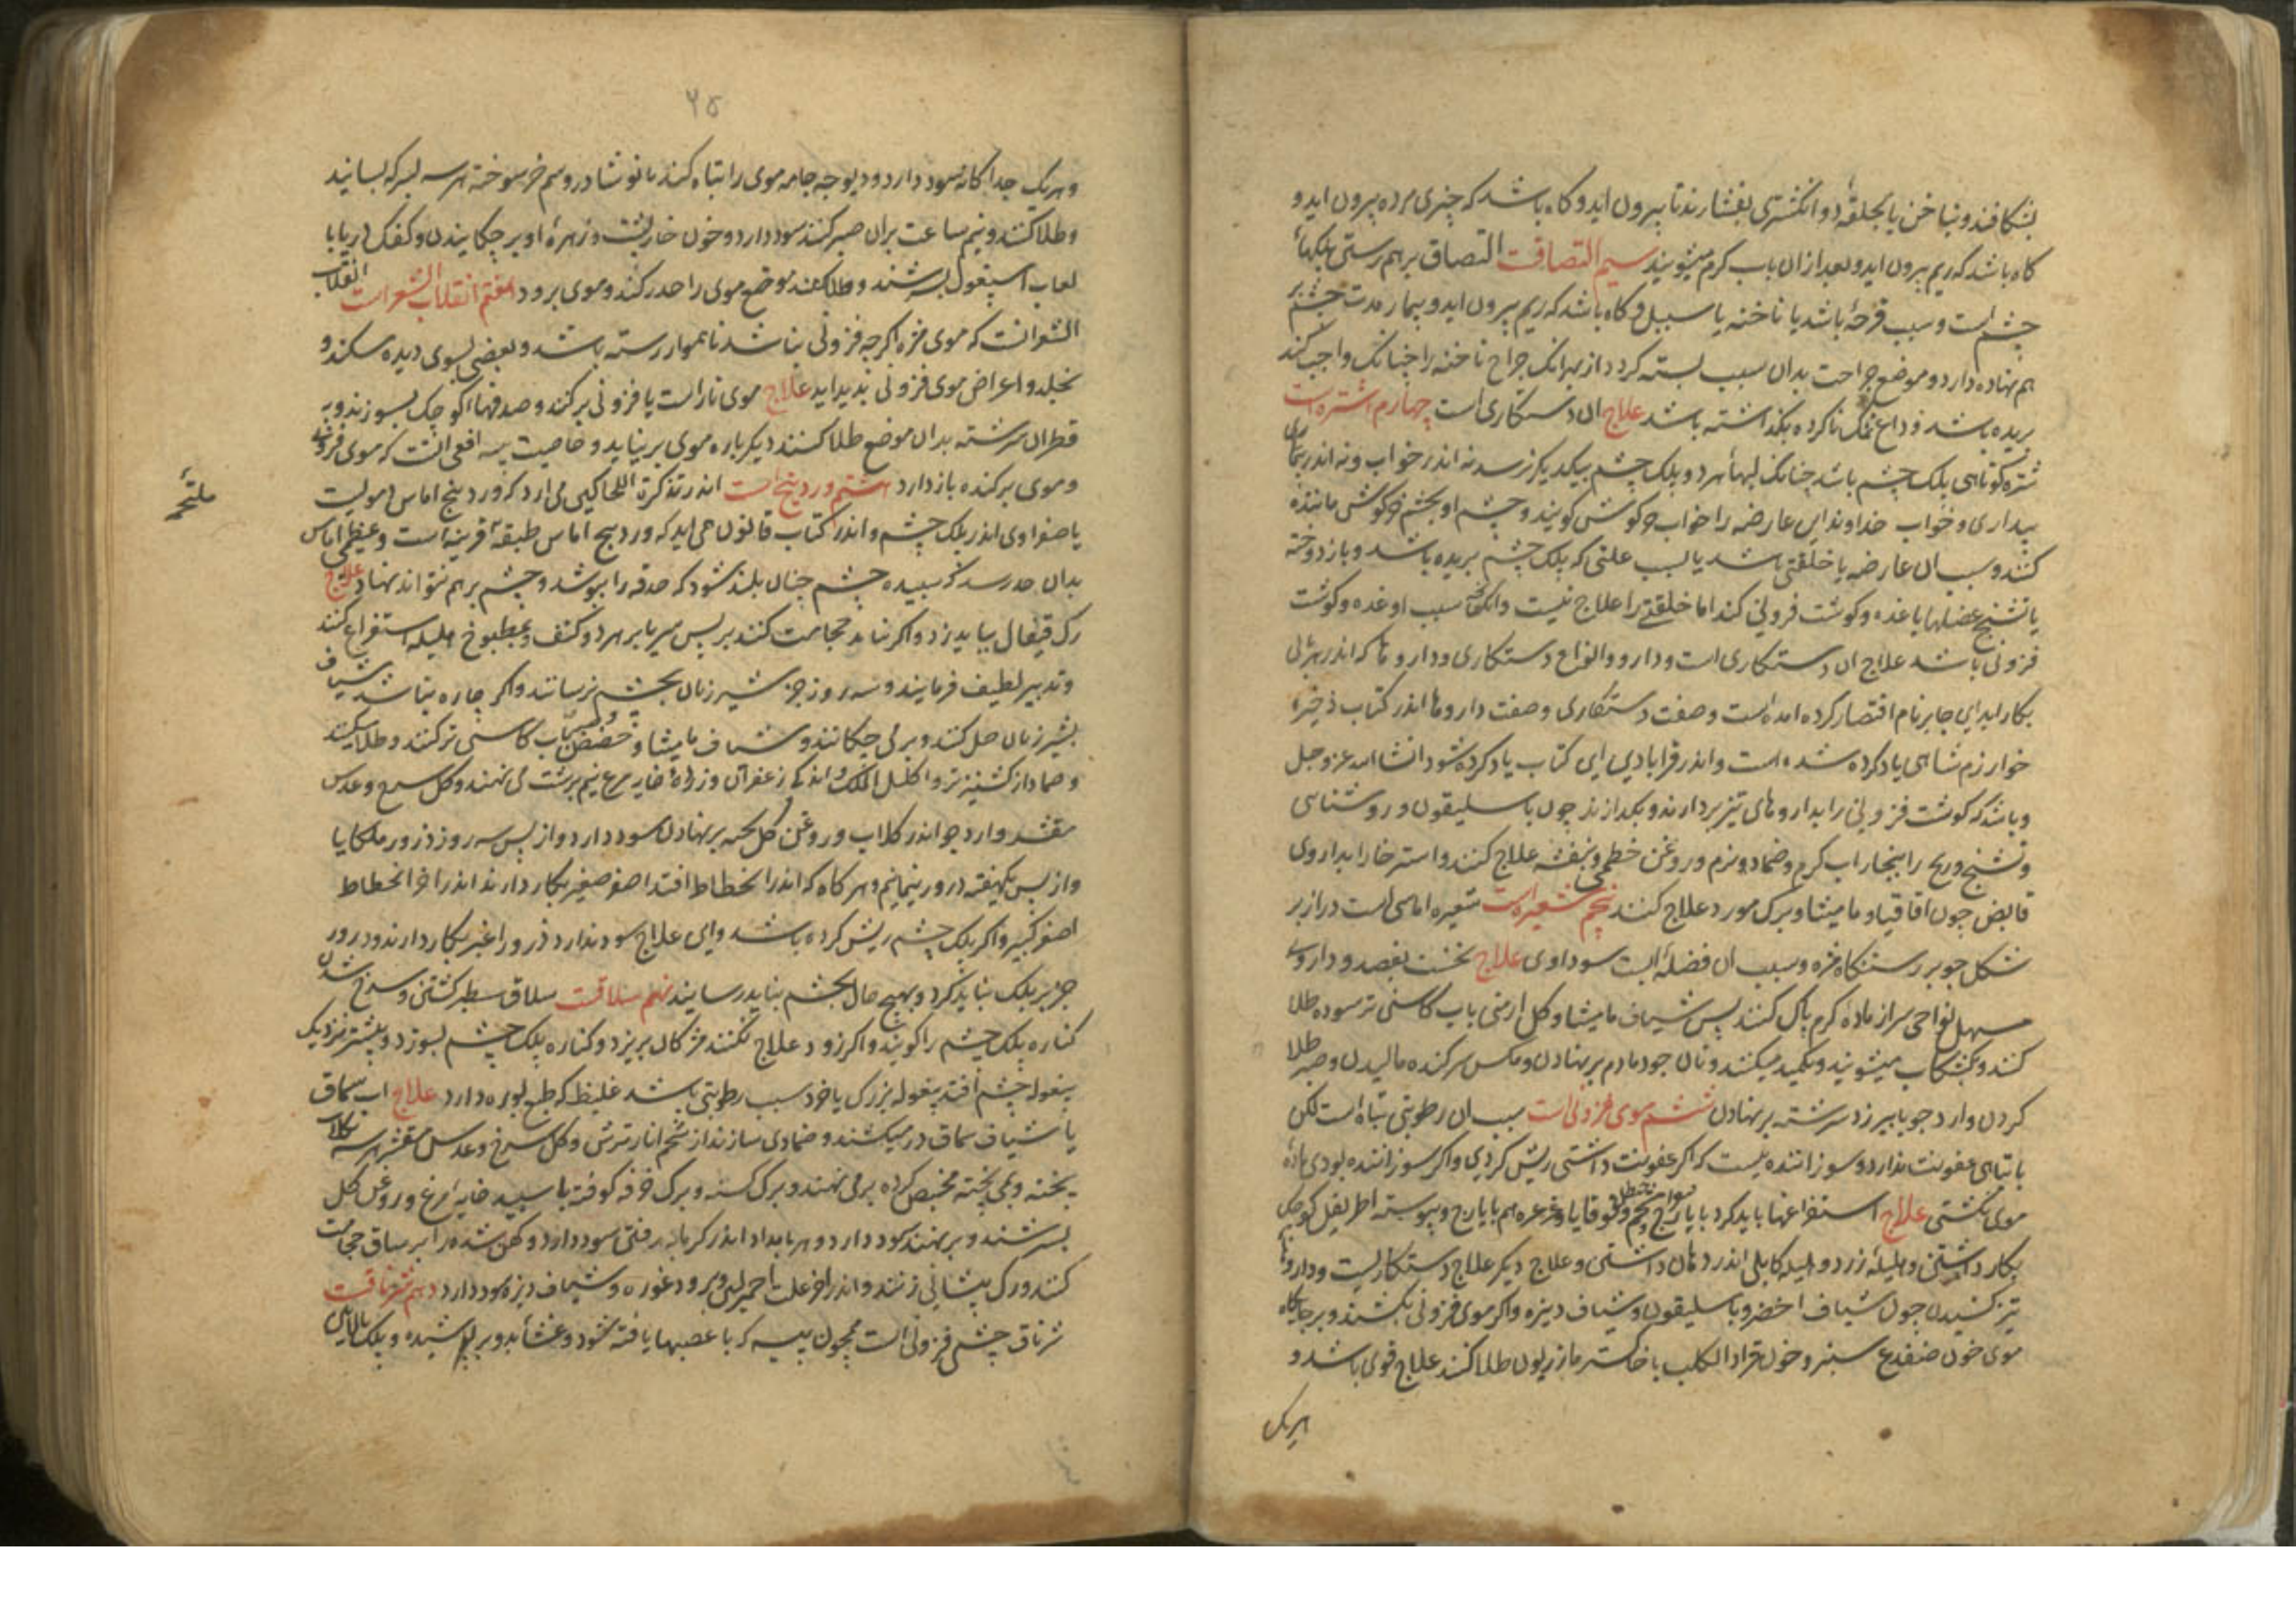 بشکافند و بناخن یا بحلقهٔ دو انکشتری بفشارند تا بیرون اید و کاه باشد که چیزی مرده بیرون اید و
کاه باشد که ریم بیرون اید و بعد ازان باب کرم میشویند سیم التصاقت التصاق برهم رستی پلکهاٴ
چشم است و سبب قرحهٔ باشد یا ناخنه یا سبل و کاه باشد که ریم بیرون اید و بیمار مدت چشم بر
هم نهاده دارد و موضع جراحت بدان سبب بسته کردد از بهر انک جراح ناخنه را چنانک واجب کند
بریده باشد و داغ نمک ناکرده بکذاشته باشد علاج ان دستکاری است چهارم اشتره است
شتره کوتاهی پلک چشم باشد چنانک لبهاٴ هر دو پلک چشم بیکدیکر نرسد نه اندر خواب و نه اندر بیداری
بیداری و خواب خداوند این عارضه را خواب خرکوش کویند و چشم او بچشم خرکوش ماننده
کنند و سبب ان عارضه یا خلقتی باشد یا بسبب علتی که پلک چشم بریده باشد و باز دوخته
یا تشنج عضلها یا غده و کوشت فزونی کند اما خلقتی را علاج نیست و انک سبب او غده و کوشت
فزونی باشد علاج ان دستکاری است و دارو و انواع دستکاری و داروها که اندر هر
بکار اید این جا بر نام اقتصار کرده امده است و صفت دستکاری و صفت داروها اندر کتاب ذخیره
خوارزم شاهی یاد کرده شده است و اندر قرابادین این کتاب یاد کرده شود انشا الله عز و جل
و باشد که کوشت فزونی را بداروهای تیز بردارند و بکدازند چون باسلیقون و روشنایی
و تشنج و ریح را ببخار اب کرم و ضماد و نرم و روغن خطمی و بنفشه علاج کنند و استرخا را بداروی
قابض چون اقاقیا و مامیثا و برک مورد علاج کنند پنجم شعیره است شعیره اماسی است دراز بر
شکل جو بر رستنکاه مژه و سبب ان فضلهٔ است سوداوی علاج نخست بفصد و داروی
مسهل نواحی سر از مادهٔ کرم پاک کنند پس شیاف مامیثا و کل ارمنی باب کاسنی تر سوده طلا
کنند و بکشکاب میشویند و تکمید میکنند و نان جو دمادم بر نهادن و مکس سر کنده مالیدن و صبر طلا
کردن و ارد جو با بیرزد سرشته بر نهادن ششم موی فزونی است سبب ان رطوبتی تباه است لکن
با تباهی عفونت ندارد و سوزاننده نیست که اکر عفونت داشتی ریش کردی و اکر سوزاننده بودی مادهٔ
موی نکشتی علاج استفراغها باید کرد بایارج و قوقایا و غرغره هم بایارج و پیوسته اطریفل کوچک
بکار داشتن و هلیلهٔ زرد و هلیلهٔ کابلی اندر دهان داشتن و علاج دیکر علاج دستکاریست و داروها
تیز کشیدن چون شیاف اخضر و باسلیقون و شیاف دیزه و اکر موی فزونی بکشند و بر جایکاه
موی خون ضفدع سبز و خون قراد الکلب با خاکستر مازریون طلا کنند علاج قوی باشد و
هریک
۲۵
و هریک جداکانه سود دارد و دیوچه جامه موی را تباه کند با نوشادر و سم خر سوخته هر سه بسرکه بسایند
و طلا کنند و نیم ساعت بران صبر کنند سود دارد و خون خارپشت و زهرهٔ او بر چکانیدن و کفک دریا با
لعاب اسپغول بسرشند و طلا کنند موضع موی را خدر کند و موی برود هفتم انقلاب الشعر است انقلاب
الشعر انست که موی مژه اکرچه فزونی نباشد ناهموار رسته باشد و بعضی بسوی دیده سر کند و
بخلد و اعراض موی فزونی پدید اید علاج موی ناراست یا فزونی برکنند و صدفها کوچک بسوزند و به
قطران سرشته بدان موضع طلا کنند دیکرباره موی برنیاید و خاصیت پیه افعی انست که موی فزونی
و موی برکنده باز دارد هشتم وردینج است اندر تذکرة الکحالین می ارد که وردینج اماس دمویست
یا صفراوی اندر پلک چشم و اندر کتاب قانون می اید که وردینج اماس طبقهٔ قرنیه است و عظیمی اماس
ملتحمهٔ
بدان حد رسد که سپیده چشم چنان بلند شود که حدقه را بپوشد و چشم برهم نتواند نهاد علاج
رک قیفال بباید زد و اکر نباید حجامت کنند بر پس سر یا بر هر دو کتف و بمطبوخ هلیله استفراغ کنند
و تدبیر لطیف فرمایند و سه روز جز شیر زنان بچشم نرسانند و اکر چاره نباشد شیاف
بشیر زنان حل کنند و بر می چکانند و شیاف مامیثا و حضض باب کاسنی تر کنند و طلا میکنند
و ضماد از کشنیز تر و اکلیل الملک و اندکی زعفران و زردهٔ خایه مرغ نیم برشت می نهند و کل سرخ و عدس
مقشر و ارد جو اندر کلاب و روغن کل پخته بر نهادن سود دارد و از پس سه روز ذرور ملکایا
و از پس یکهفته ذرور نیم و هر کاه که اندر انحطاط افتد اصفر صغیر بکار دارند اندر اخر انحطاط
اصفر کبیر و اکر پلک چشم ریش کرده باشد و این علاج سود ندارد ذرور اغبر بکار دارند و ذرور
جز بر پلک نباید کرد و بهیچ حال بچشم نباید رسانید نهم سلاقت سلاق سطبر کشتن و سرخ شدن
کناره پلک چشم را کویند و اکر زود علاج نکنند مژکان بریزد و کناره پلک چشم بسوزد و بیشتر نزدیک
بیغوله چشم افتد بیغوله بزرک یا خرد سبب رطوبتی باشد غلیظ که طبع بوره دارد علاج اب سماق
یا شیاف سماق در میکشند و ضمادی سازند از شحم انار ترش و کل سرخ و عدس مقشر هر سه بکلاب
پخته و بمی پخته کرده بر می نهند و برک کسنه و برک خرفه کوفته با سپیده خایه مرغ و روغن کل
بسرشند و بر نهند سود دارد و هر بامداد اندر کرمابه رفتن سود دارد و کهن شده را بر ساق حجامت
کنند و رک پیشانی زنند و اندر اخر علت احمر لین و برود غوره و شیاف دیزه سود دارد دهم شرناقت
شرناق چشم فزونی است همچون پیه که با عصبها بافته شود و غشاٴ بدو پوشیده و پلک بالایین